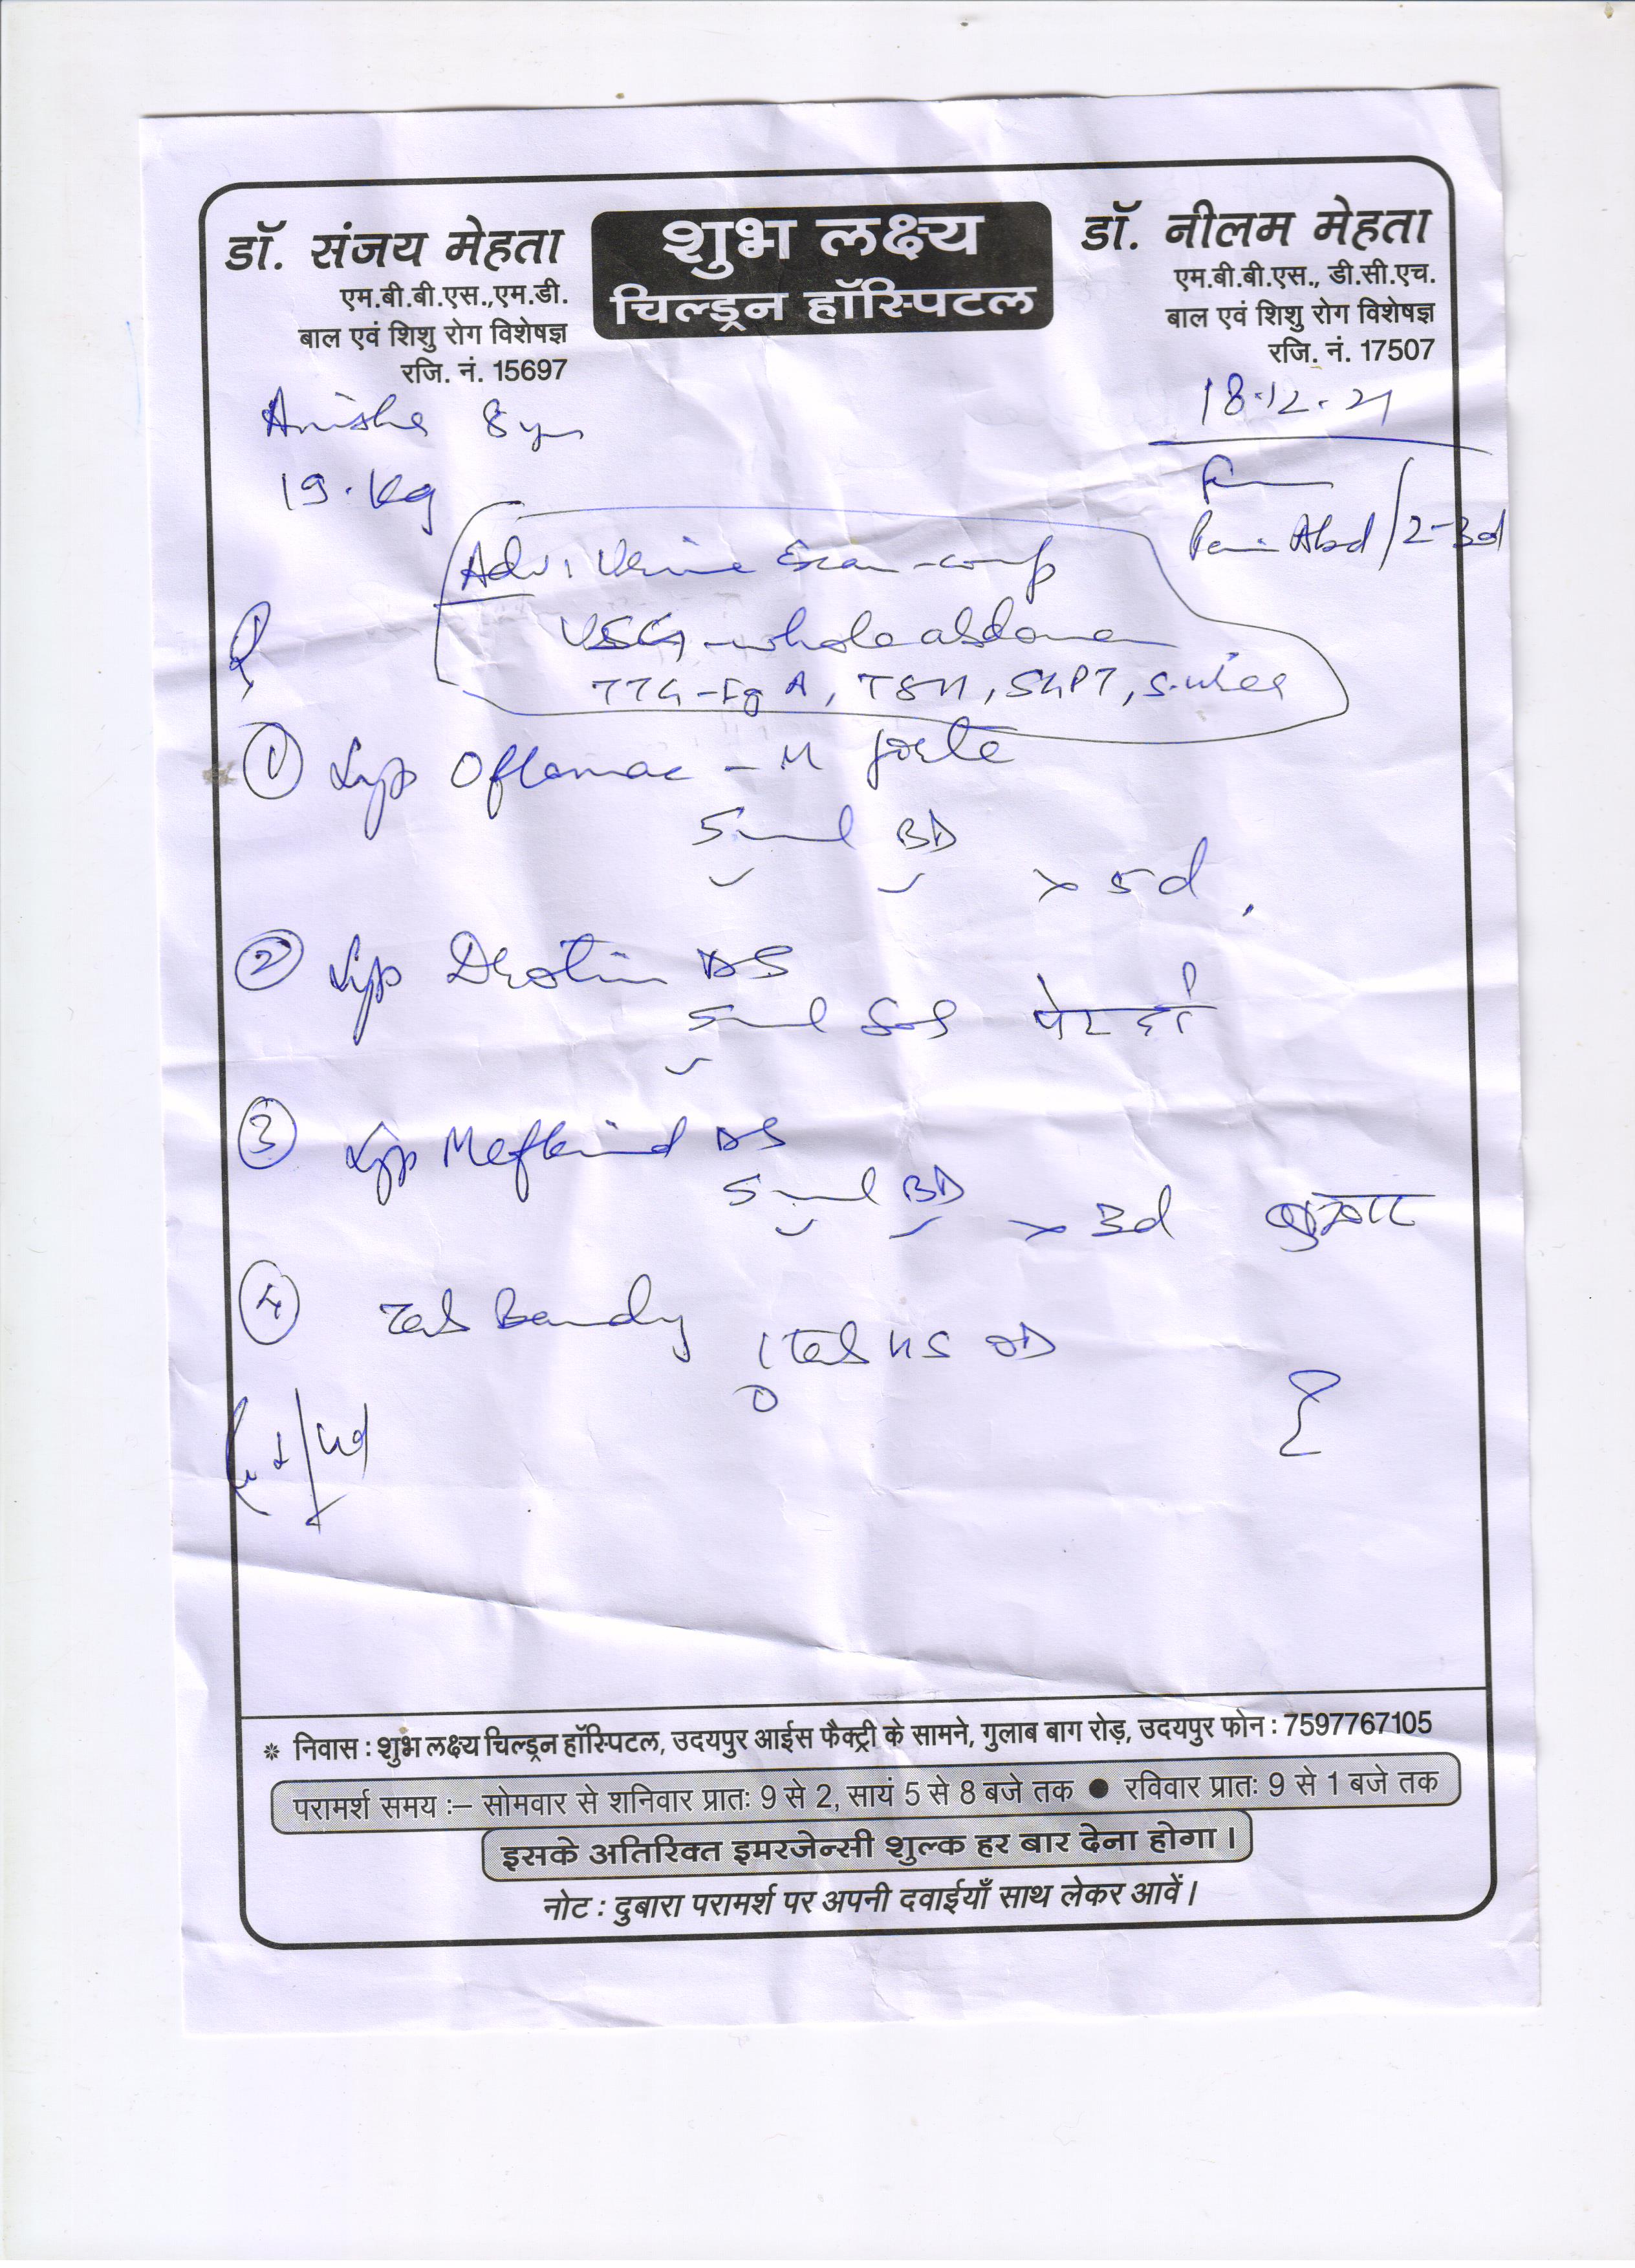 डॉ. संजय मेहता
एम.बी.बी.एस.,एम.डी.
बाल एवं शिशु रोग विशेषज्ञ
रजि. नं. 15697
शुभ लक्ष्य
चिल्ड्रन हॉस्पिटल
डॉ. नीलम मेहता
एम.बी.बी.एस., डी.सी.एच.
बाल एवं शिशु रोग विशेषज्ञ
रजि. नं. 17507
18.12.21
Anisha 8 yrs
19.kg
Pain Abd / 2-3d
Adv: Urine Exam-comp
USG-whole abdomen
TTG-IgA, TSH, SGPT, S.urea
① Syp Oflomac - M forte
5 ml BD
x 5d
② Syp Drotin DS
5 ml SOS पेट दर्द
③ Syp Mefkind DS
5 ml BD
x 3d बुखार
④ Tab Bandy
1 Tab HS OD
* निवास : शुभ लक्ष्य चिल्ड्रन हॉस्पिटल, उदयपुर आईस फैक्ट्री के सामने, गुलाब बाग रोड़, उदयपुर फोन : 7597767105
परामर्श समय :– सोमवार से शनिवार प्रातः 9 से 2, सायं 5 से 8 बजे तक ● रविवार प्रातः 9 से 1 बजे तक
इसके अतिरिक्त इमरजेन्सी शुल्क हर बार देना होगा।
नोट : दुबारा परामर्श पर अपनी दवाईयाँ साथ लेकर आवें।